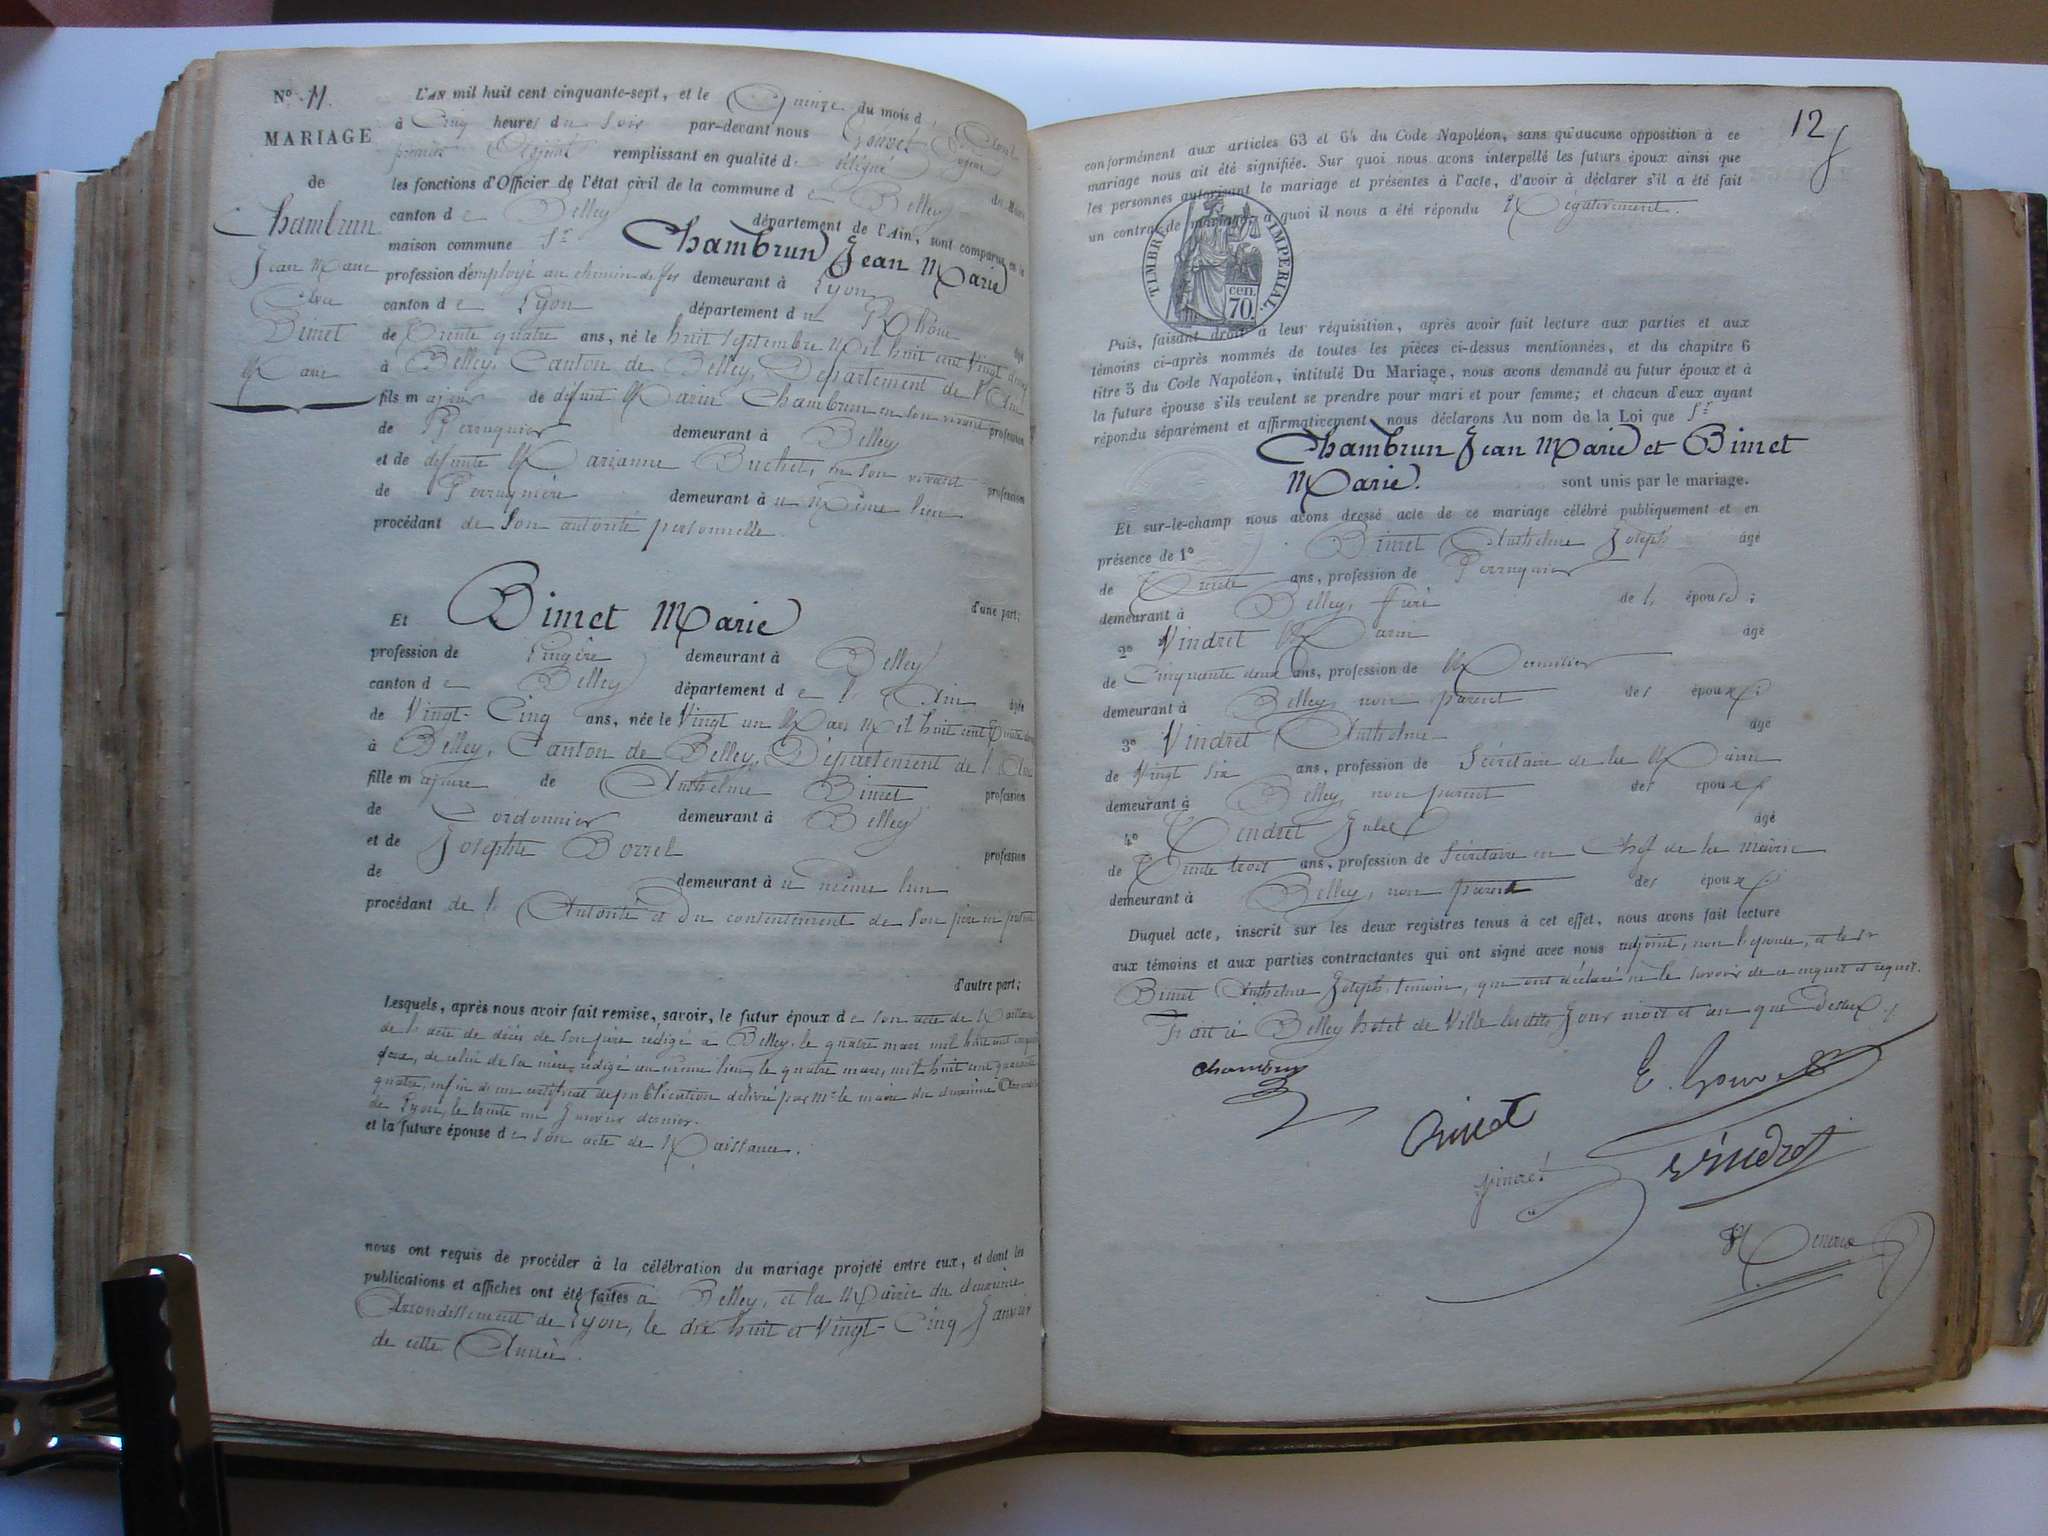 Nº 11.
MARIAGE
de
Chambrun
Jean Marie
Et
Bimet
Marie
L'AN mil huit cent cinquante-sept, et le Quinze du mois d
à Cinq heures du Soir par-devant nous Gouvet
premier Adjoint remplissant en qualité de délégué du Maire
les fonctions d'Officier de l'état civil de la commune de Belley
canton de Belley département de l'Ain, sont comparus en la
maison commune Sr Chambrun Jean Marie
profession d'employé au chemin de fer demeurant à Lyon
canton de Lyon département du Rhône âgé
de Trente quatre ans, né le huit Septembre Mil huit cent Vingt deux
à Belley, Canton de Belley, Département de l'Ain
fils majeur de défunt Marin Chambrun en son vivant profession
de Perruquier demeurant à Belley
et de défunte Marianne Buchet, en son vivant profession
de Perruquière demeurant à u Même lieu
procédant de Son autorité personnelle.
d'une part;
Et Bimet Marie
profession de Lingère demeurant à Belley
canton de Belley département de l'Ain âgée
de Vingt-Cinq ans, née le Vingt un Mars Mil huit cent Trente deux
à Belley, Canton de Belley, Département de l'Ain
fille majeure de Anthelme Bimet profession
de Cordonnier demeurant à Belley
et de Josephte Borrel profession
de demeurant à u même lieu
procédant de l'Autorité et Du consentement de Son père ici présent
d'autre part;
Lesquels, après nous avoir fait remise, savoir, le futur époux de son acte de Naissance
de l'acte de décès de son père rédigé à Belley le quatre mars mil huit cent cinquante
deux, de celui de sa mère, rédigé au même lieu, le quatre mars, mil huit cent quarante
quatre, enfin d'un certificat de publication délivré par Mr le maire du deuxième Arrondt
de Lyon, le trente un Janvier dernier.
et la future épouse de son acte de Naissance.
nous ont requis de procéder à la célébration du mariage projeté entre eux, et dont les
publications et affiches ont été faites à Belley, et la Mairie du deuxième
Arrondissement de Lyon, le dix huit et Vingt-Cinq Janvier
de cette Année.
12
conformément aux articles 63 et 64 du Code Napoléon, sans qu'aucune opposition à ce
mariage nous ait été signifiée. Sur quoi nous avons interpellé les futurs époux ainsi que
les personnes autorisant le mariage et présentes à l'acte, d'avoir à déclarer s'il a été fait
un contrat de mariage, à quoi il nous a été répondu Négativement.
TIMBRE IMPERIAL
70 cen.
Puis, faisant droit à leur réquisition, après avoir fait lecture aux parties et aux
témoins ci-après nommés de toutes les pièces ci-dessus mentionnées, et du chapitre 6
titre 5 du Code Napoléon, intitulé Du Mariage, nous avons demandé au futur époux et à
la future épouse s'ils veulent se prendre pour mari et pour femme; et chacun d'eux ayant
répondu séparément et affirmativement nous déclarons Au nom de la Loi que Sr
Chambrun Jean Marie et Bimet
Marie. sont unis par le mariage.
Et sur-le-champ nous avons dressé acte de ce mariage célébré publiquement et en
présence de 1º Bimet Anthelme Joseph âgé
de Trente ans, profession de Perruquier
demeurant à Belley, frère de l'épouse;
2º Vindret Marin âgé
de Cinquante deux ans, profession de Menuisier
demeurant à Belley, non parent des époux;
3º Vindret Anthelme âgé
de Vingt Six ans, profession de Secrétaire de la Mairie
demeurant à Belley, non parent des époux
4º Tendret Jules âgé
de Trente trois ans, profession de Secrétaire en Chef de la mairie
demeurant à Belley, non parent des époux
Duquel acte, inscrit sur les deux registres tenus à cet effet, nous avons fait lecture
aux témoins et aux parties contractantes qui ont signé avec nous adjoint, non l'épouse, et le Sr
Bimet Anthelme Joseph, témoin, qui ont déclaré ne le savoir de ce enquis et requis.
Fait à Belley hotel de Ville lesdits Jour mois et an que Dessus.
Chambrun
E. Gouvet
Bimet
Vindret